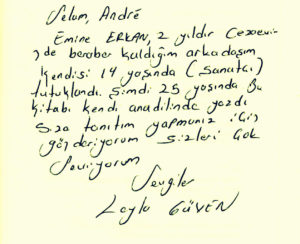 Selam, André
Emine ERKAN, 2 yıldır Cezaevin
de beraber kaldığım arkadaşım
kendisi 14 yaşında (sanatçı)
tutuklandı. Şimdi 25 yaşında Bu
kitabı kendi anadilinde yazdı
Size tanıtım yapmanız için
gönderiyorum sizleri çok
Seviyorum
Sevgiler
Leyla GÜVEN